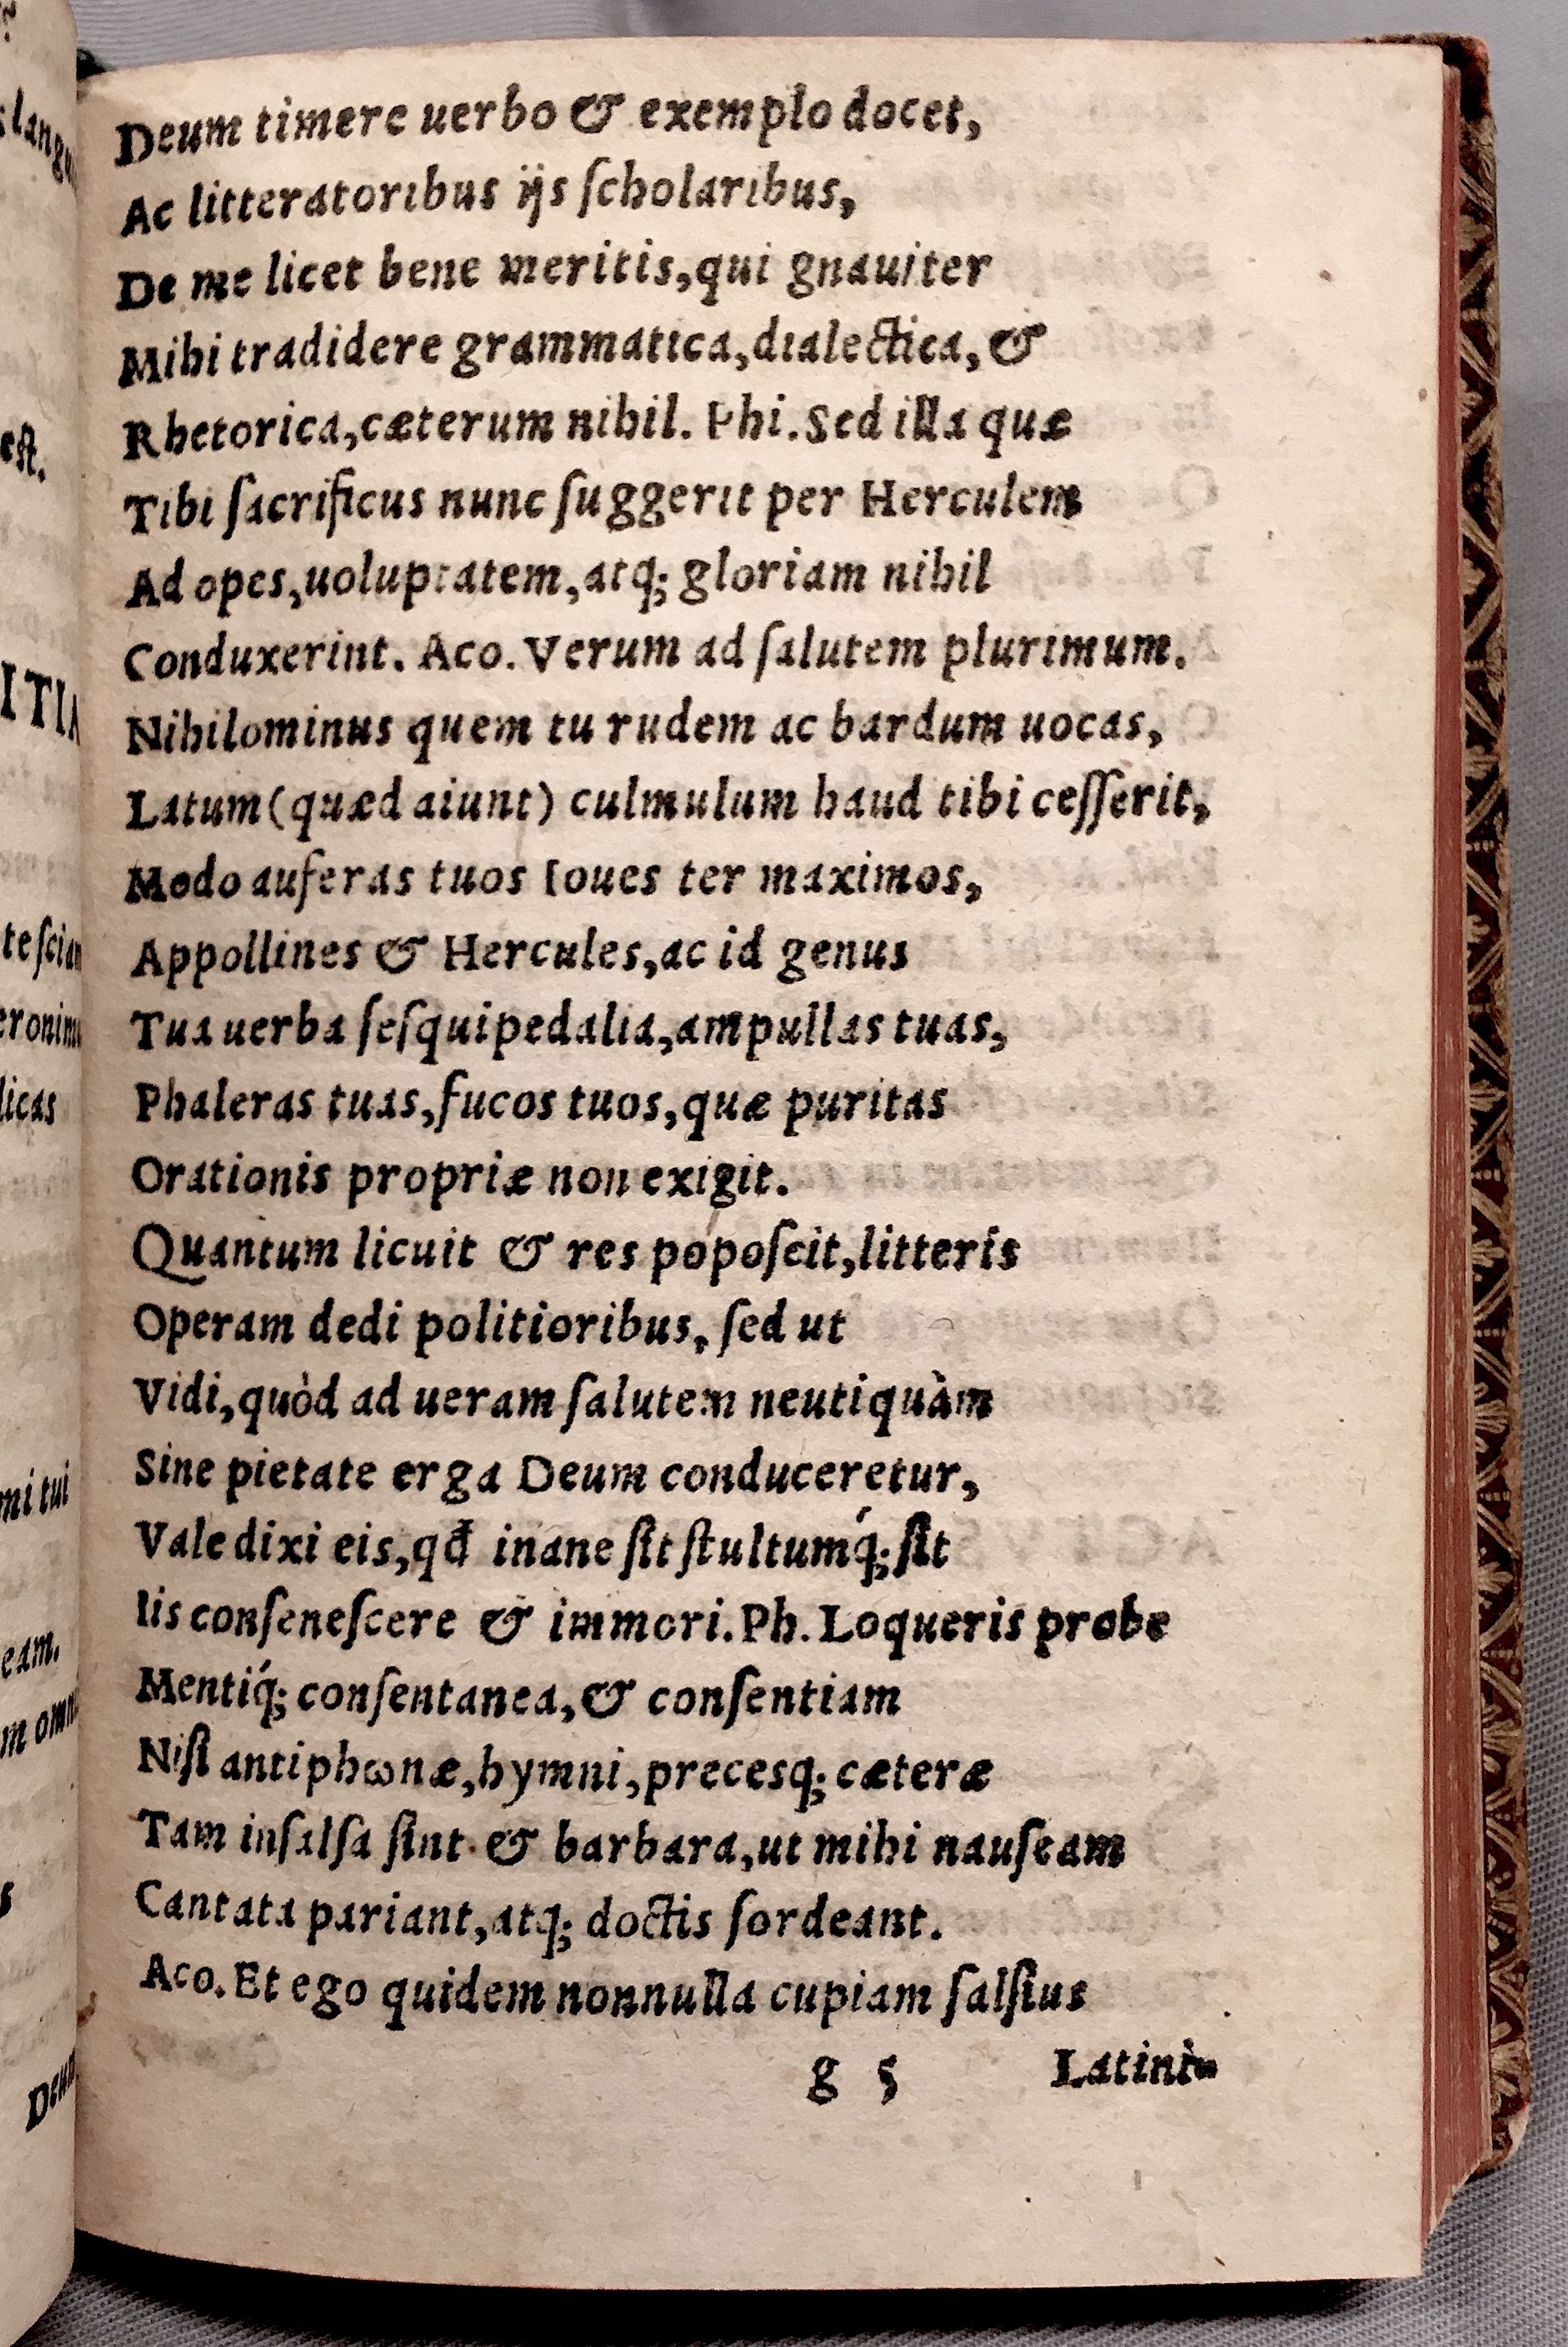 Deum timere uerbo & exemplo docet,
Ac litteratoribus ijs ſcholaribus,
De me licet bene meritis, qui gnauiter
Mihi tradidere grammatica, dialectica, &
Rhetorica, cæterum nihil. Phi. Sed illa quæ
Tibi ſacrificus nunc ſuggerit per Herculem
Ad opes, uoluptatem, atq; gloriam nihil
Conduxerint. Aco. Verum ad ſalutem plurimum.
Nihilominus quem tu rudem ac bardum uocas,
Latum (quæd aiunt) culmulum haud tibi ceſſerit,
Modo auferas tuos Ioues ter maximos,
Appollines & Hercules, ac id genus
Tua uerba ſeſquipedalia, ampullas tuas,
Phaleras tuas, fucos tuos, quæ puritas
Orationis propriæ non exigit.
Quantum licuit & res popoſcit, litteris
Operam dedi politioribus, ſed ut
Vidi, quòd ad ueram ſalutem neutiquàm
Sine pietate erga Deum conduceretur,
Vale dixi eis, qđ inane ſit ſtultumq́; ſit
Iis conſeneſcere & immori. Ph. Loqueris probe
Mentiq́; conſentanea, & conſentiam
Niſi antiphωnæ, hymni, precesq; cæteræ
Tam inſalſa ſint & barbara, ut mihi nauſeam
Cantata pariant, atq; doctis ſordeant.
Aco. Et ego quidem nonnulla cupiam ſalſius
g 5 Latini-